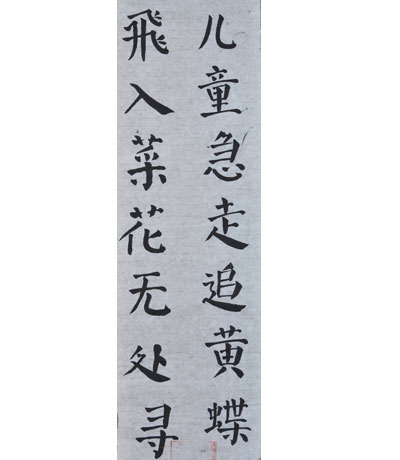 儿童急走追黄蝶
飛入菜花无处寻